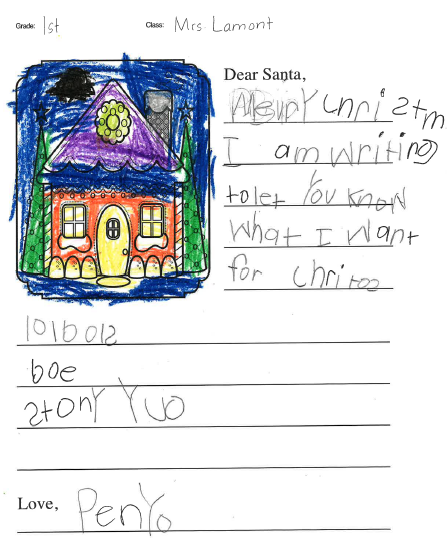 Grade: 1st Class: Mrs Lamont
Dear Santa,
Chri stm
I am writing
to let You know
What I Want
for Chri
boe
stony Yuo
Love, Penyo